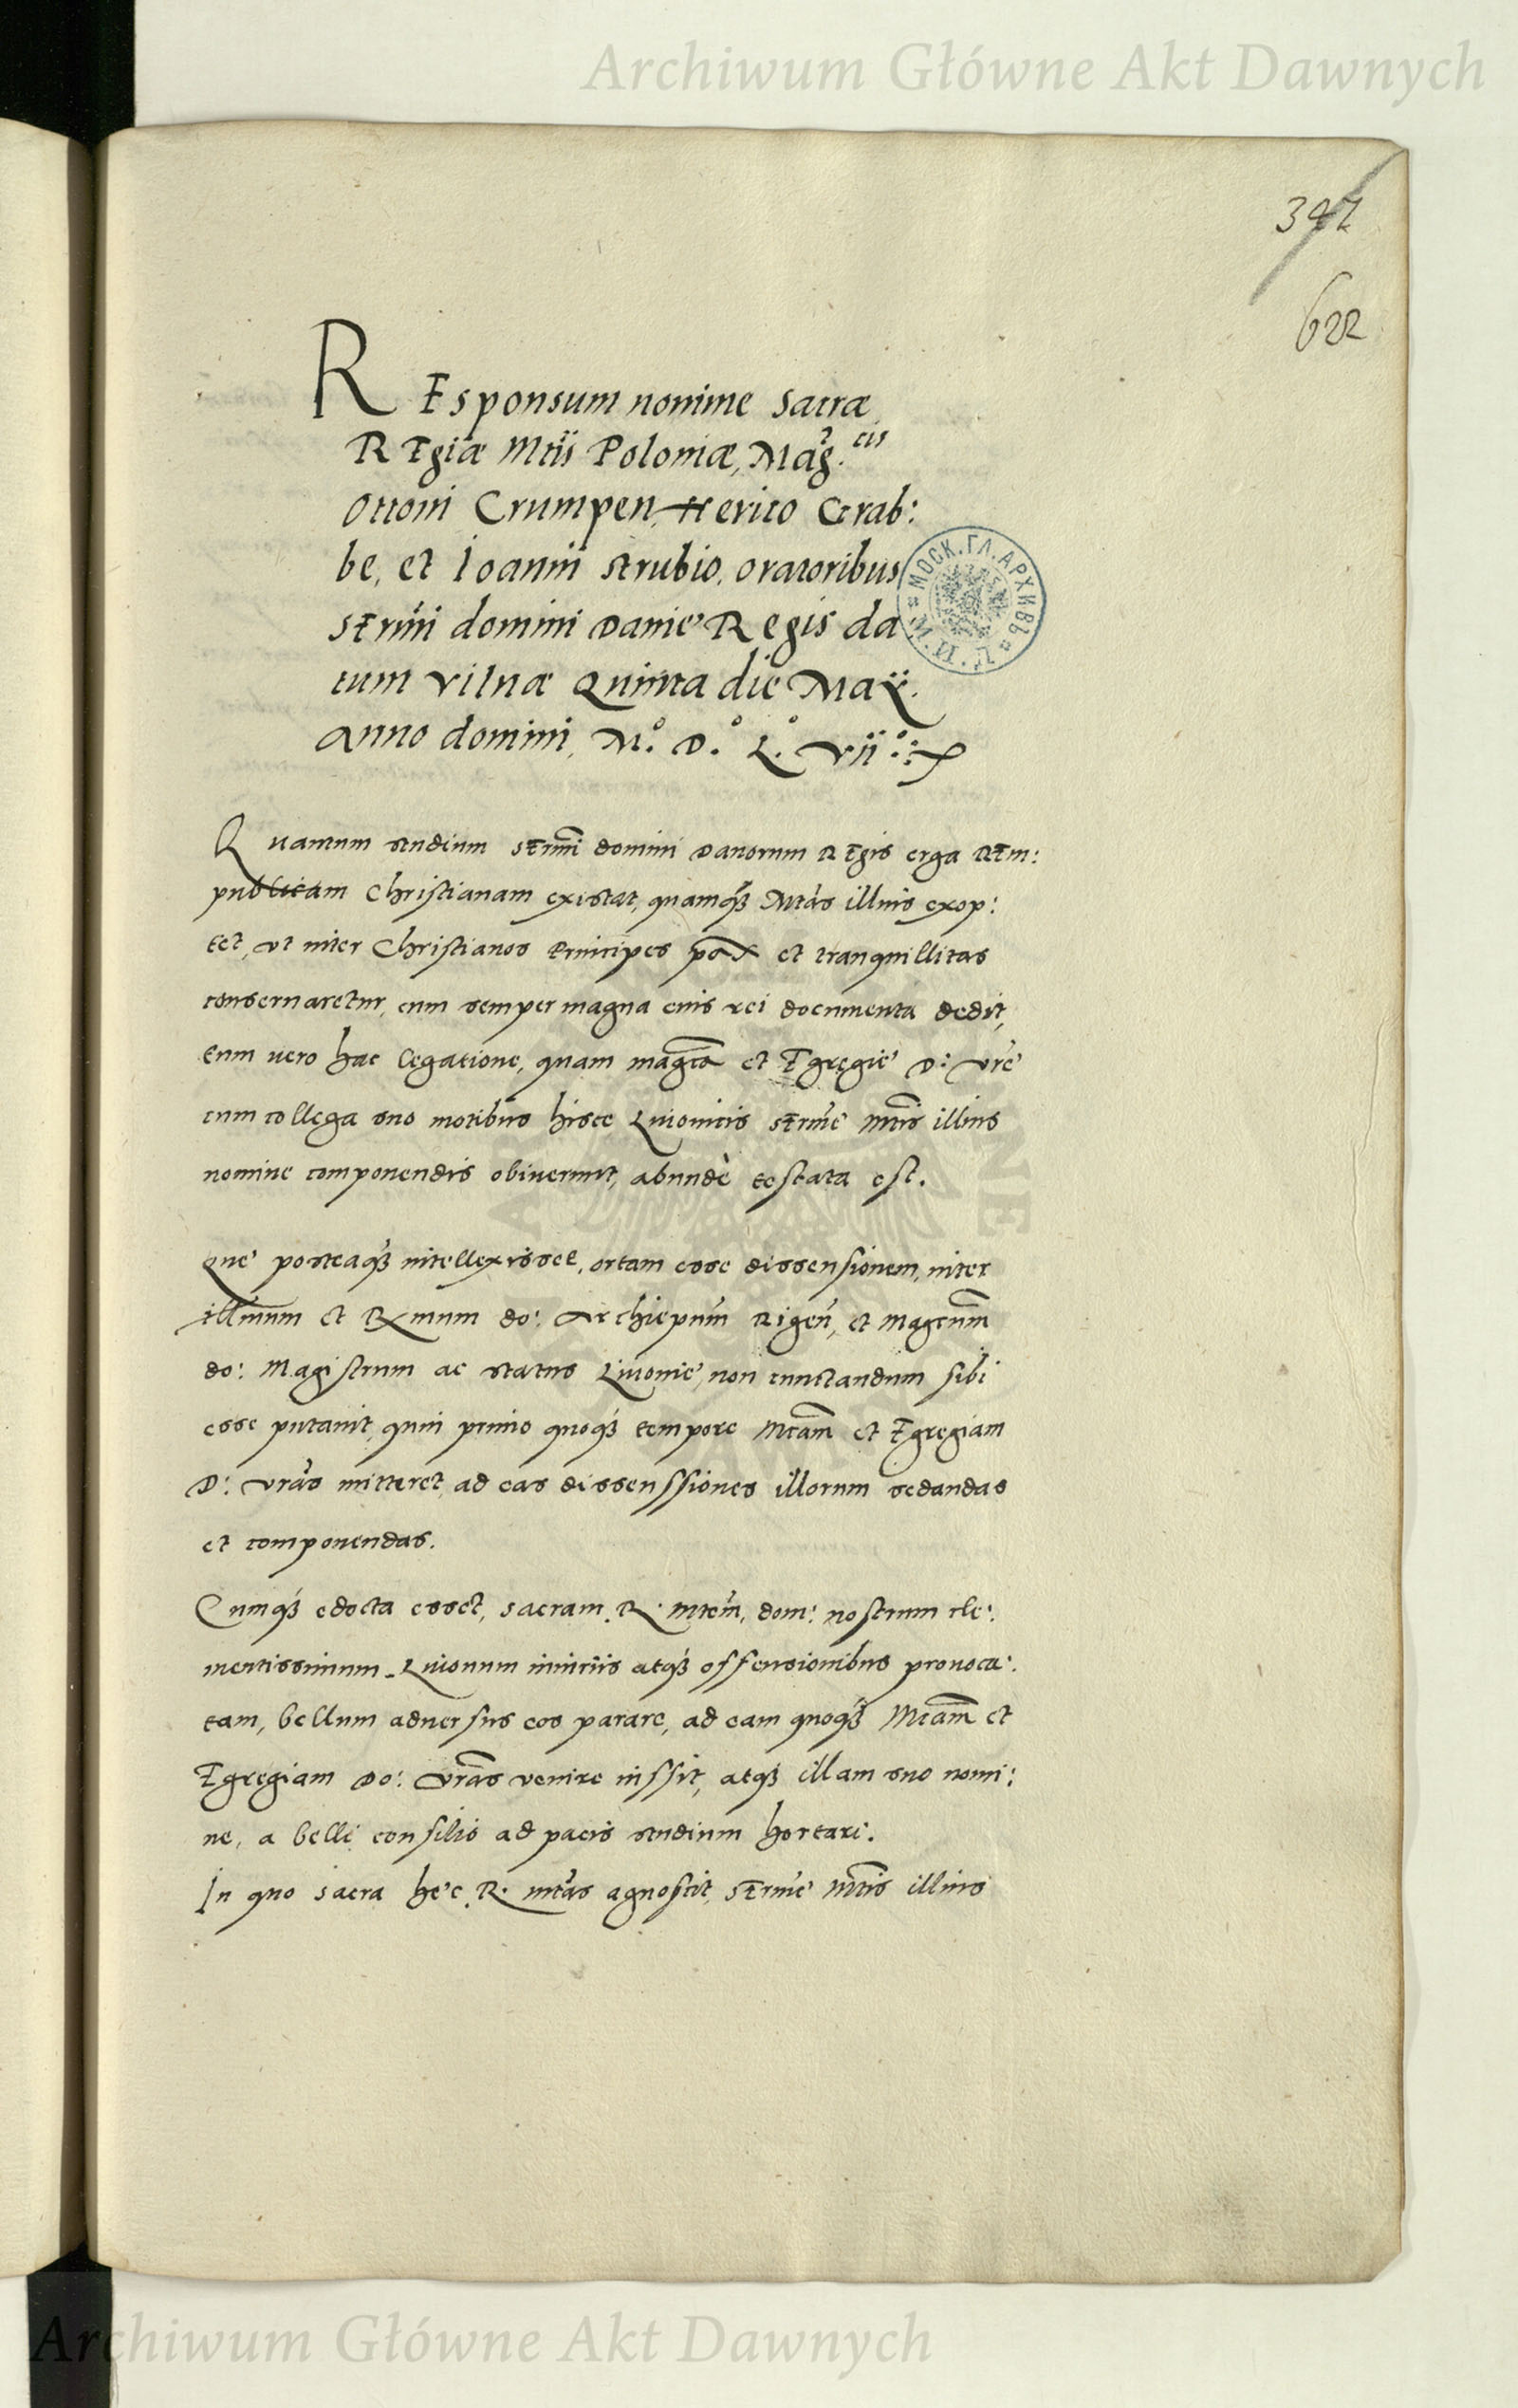 Archiwum Główne Akt Dawnych
347
622
REsponsum nomine sacræ
REgiæ Mtis Poloniæ, Mag.cis
Ottoni Crumpen, Herico Grab:
be, et Ioanni Strubio, oratoribus
SErmi domini Danie Regis da
tum Vilnæ Quinta die Maÿ.
Anno domini, M.º D.º L.º Vii.º
МОСК.ГЛ.АРХИВЪ
Quantum studium SErmi domini Danorum REgis erga REm:
publicam Christianam existat, quamqȝ Mtas illius exop:
tet, vt inter Christianos Principes pax et tranquillitas
conseruaretur, cum semper magna eius rei documenta dedit,
tum uero hac legatione, quam magca et Egregie D: vre
cum collega suo motibus hisce Liuonicis SErme Mtis illius
nomine componendis obiuerunt, abundè testata est.
Que posteaqȝ intellexisset, ortam esse dissensionem, inter
illmum et Rxmum do: Archiepum Rigen, et Magcum
do: Magistrum ac status Liuonie, non cunctandum sibi
esse putauit, quin primo quoqȝ tempore Mcam et Egregiam
D: vras mitteret, ad eas dissenssiones illorum sedandas
et componendas.
Cumqȝ edocta esset, sacram R. Mtem, dom: nostrum cle:
mentissimum Liuonum iniuriis atqȝ offensionibus prouoca:
tam, bellum aduersus eos parare, ad eam quoqȝ Mcam et
Egregiam Do: vras venire iussit, atqȝ illam suo nomi:
ne, a belli consiliis ad pacis studium hortari.
In quo sacra hec R. mtas agnoscit, SErme Mtis illius
Archiwum Główne Akt Dawnych